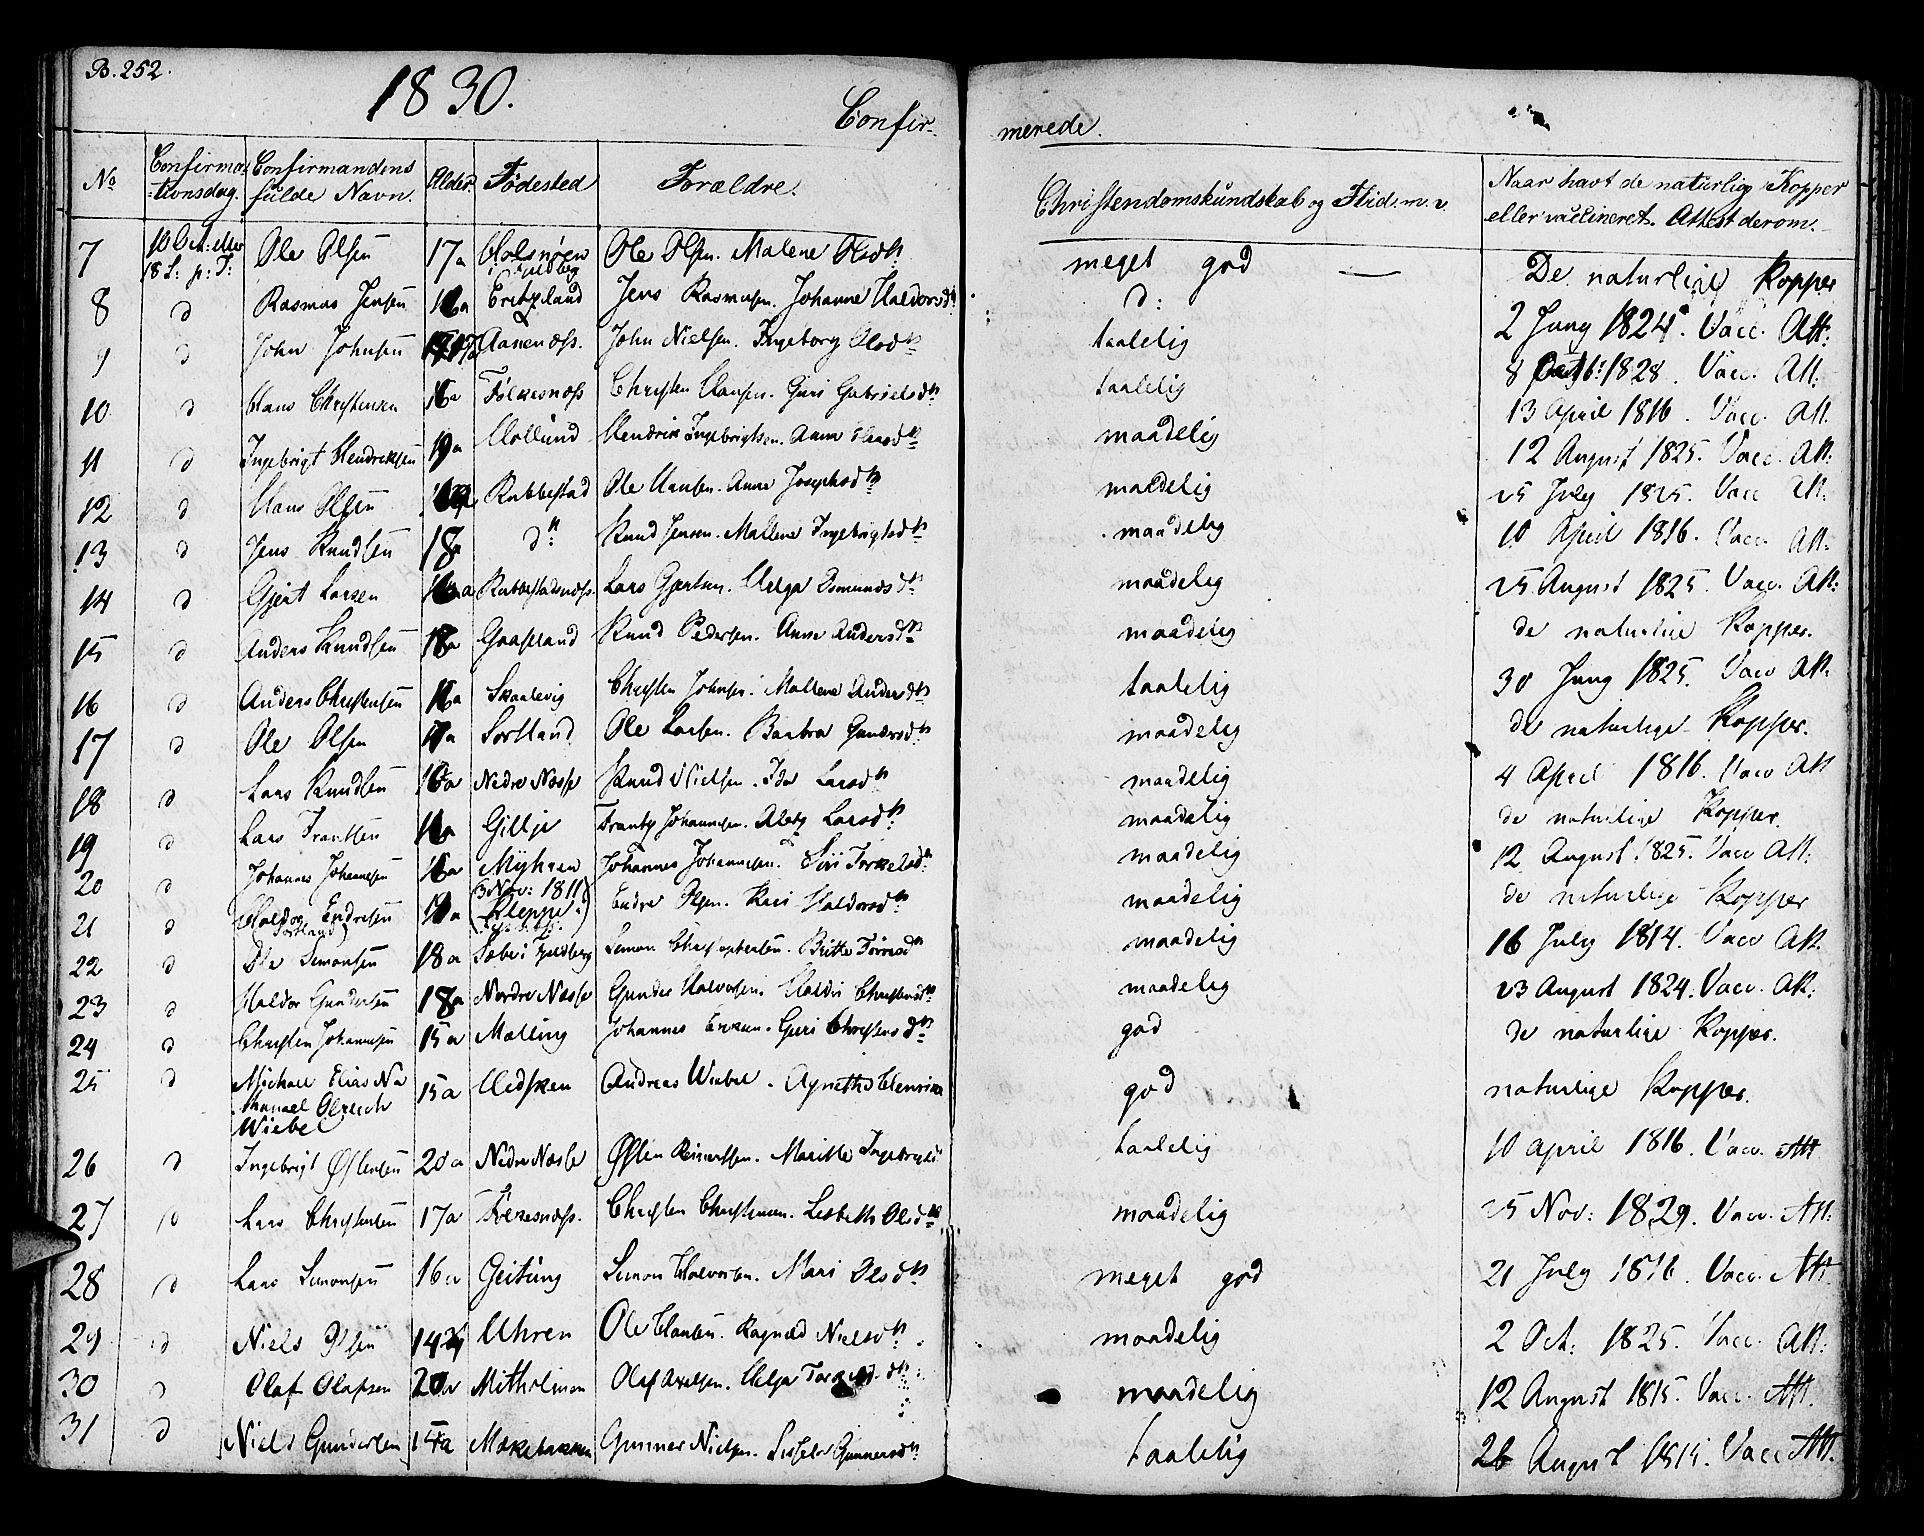 B. 252.
1830.
Confir-
merede.
No
Confirma-
-tionsdag.
Confirmandens
fulde Navn.
Alder.
Fødested
Forældre.
Christendomskundskab og Flid m. v.
Naar havt de naturlige Kopper
eller vaccineret. Attest derom.
7 10 Oct. eller 18 S: p: T: Ole Olsen 17 a Holsnøen i Fieldberg Ole Olsen. Malene Olsdr meget god — De naturlige Kopper
8 d Rasmus Jensen a Jens Rasmusen. Johanne Haldorsdr d: 2 Juny 1824. Vacc. Att:
9 d John Johnsen John Nielsen. Ingeborg Olsdr taalelig 8 1828. Vacc. Att:
10 d Hans Christensen 16 a Følkesnæss Christen Hansen. Guri Gabrielsdr taalelig 13 April 1816. Vacc. Att.
11 d Ingebrigt Hendriksen 19 a Hollund Hendrik Ingebrigtsen. Anna Olsdr maadelig 12 August 1825. Vacc. Att:
12 d Hans Olsen Rabbestad Ole Hansen. Anne Josephsdr maadelig 25 July 1825. Vacc Att:
13 d Jens Knudsen 18 d: Knud Jensen. Mallene Ingebrigtsdr maadelig 10 April 1816. Vacc Att:
14 d Gjert Larsen a Rabbestadsnæss. Lars Gjertsen. Helga Osmundsdr maadelig 25 August 1825. Vacc. Att:
15 d Anders Knudsen 18 a Gaassland Knud Pedersen. Anna Andersdr maadelig de naturlige Kopper.
16 d Anders Christensen 16 a Skaalevig Christen Johnsen. Mallene Andersdr taalelig 30 Juny 1825. Vacc Att.
17 d Ole Olsen 17 a Sortland Ole Larsen. Barbra Gundersdr maadelig de naturlige Kopper.
18 d Lars Knudsen 16 a Nedre Næsse Knud Nielsen. Ida Larsdr maadelig 4 April 1816. Vacc Att
19 d Lars Frantsen 16 a Gillje Frantz Johannesen. Larsdr maadelig de naturlige Kopper.
20 d Johannes Johannesen 16 a Myhren Johannes Johannesen. Siri Torkelsdr maadelig 12 August 1825. Vacc Att:
21 d Haldor Endresen Sortland a (3 Nov: 1811) Kleppe Endre Olsen. Kari Haldorsdr maadelig de naturlige Kopper
22 d Ole Simonsen 18 a Sæbø i Fieldberg Simon Christophersen. Britte Tørresdr maadelig 16 July 1814. Vacc Att.
23 d Haldor Gundersen 18 a Nordre Næsse Gunder Halvorsen. Christensdr maadelig 23 August 1824. Vacc. Att:
24 d Christen Johannesen 15 a Mælling Johannes. Guri Christensdr god de naturlige Kopper.
25 d Michael Elias Na- thanael Olrich Wiebel 15 a Andreas Wiebel. Agnetha Henrica god naturlige Kopper.
26 d Ingebrigt Østensen 20 a Nedre Næsse Østen Reinertsen. Maritte Ingebrigtsdr taalelig 10 April 1816. Vacc. Att
27 d Lars Christensen 17 a Følkesnæss. Christen Christensen. Lisbeth Olsdr maadelig 25 Nov: 1829. Vacc. Att:
28 d Lars Simonsen 16 a Geitung Simon Halvorsen. Mari Olsdr meget god 21 July 1816. Vacc. Att
29 d Niels Olsen 14 Uhren Ole Hansen. Ragnild Nielsdr maadelig 2 Oct: 1825. Vacc. Att:
30 d Olaf Olafsen 20 a Mitholmen Olaf Axelsen. Helga maadelig 12 August 1815. Vacc. Att.
31 d Niels Gundersen a Møkebakken Gunner Nielsen. Gunnersdr taalelig 26 August 1815. Vacc Att.